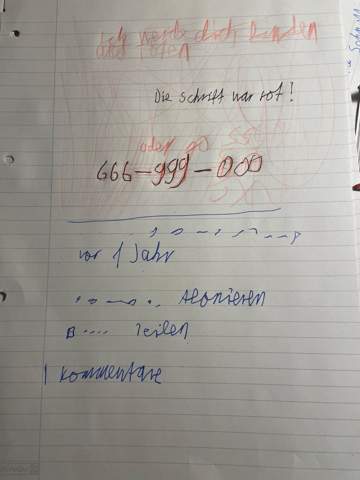 Ich werde dich finden
und töten
Die Schrift war rot!
oder so
666-999-000
vor 1 Jahr
Abonnieren
B.... Teilen
Kommentare